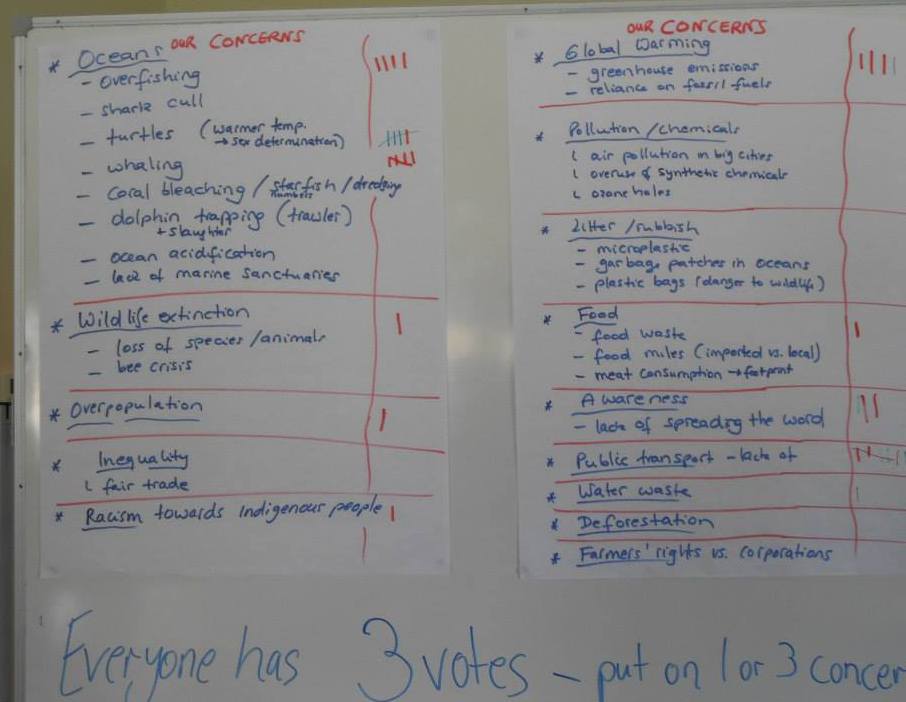 OUR CONCERNS
* Oceans
- overfishing
- shark cull
- turtles (warmer temp.
→ sex determination)
- whaling
- coral bleaching / starfish / dredging
numbers
- dolphin trapping (trawler)
+ slaughter
- ocean acidification
- lack of marine sanctuaries
* Wildlife extinction
- loss of species/animals
- bee crisis
* Overpopulation
* Inequality
L fair trade
* Racism towards indigenous people
OUR CONCERNS
* Global Warming
- greenhouse emissions
- reliance on fossil fuels
* Pollution/chemicals
L air pollution in big cities
L overuse of synthetic chemicals
L ozone holes
* Litter/rubbish
- microplastic
- garbage patches in oceans
- plastic bags (danger to wildlife)
* Food
- food waste
- food miles (imported vs. local)
- meat consumption → footprint
* Awareness
- lack of spreading the word
* Public transport - lack of
* Water waste
* Deforestation
* Farmers' rights vs. corporations
Everyone has 3 votes - put on 1 or 3 concer